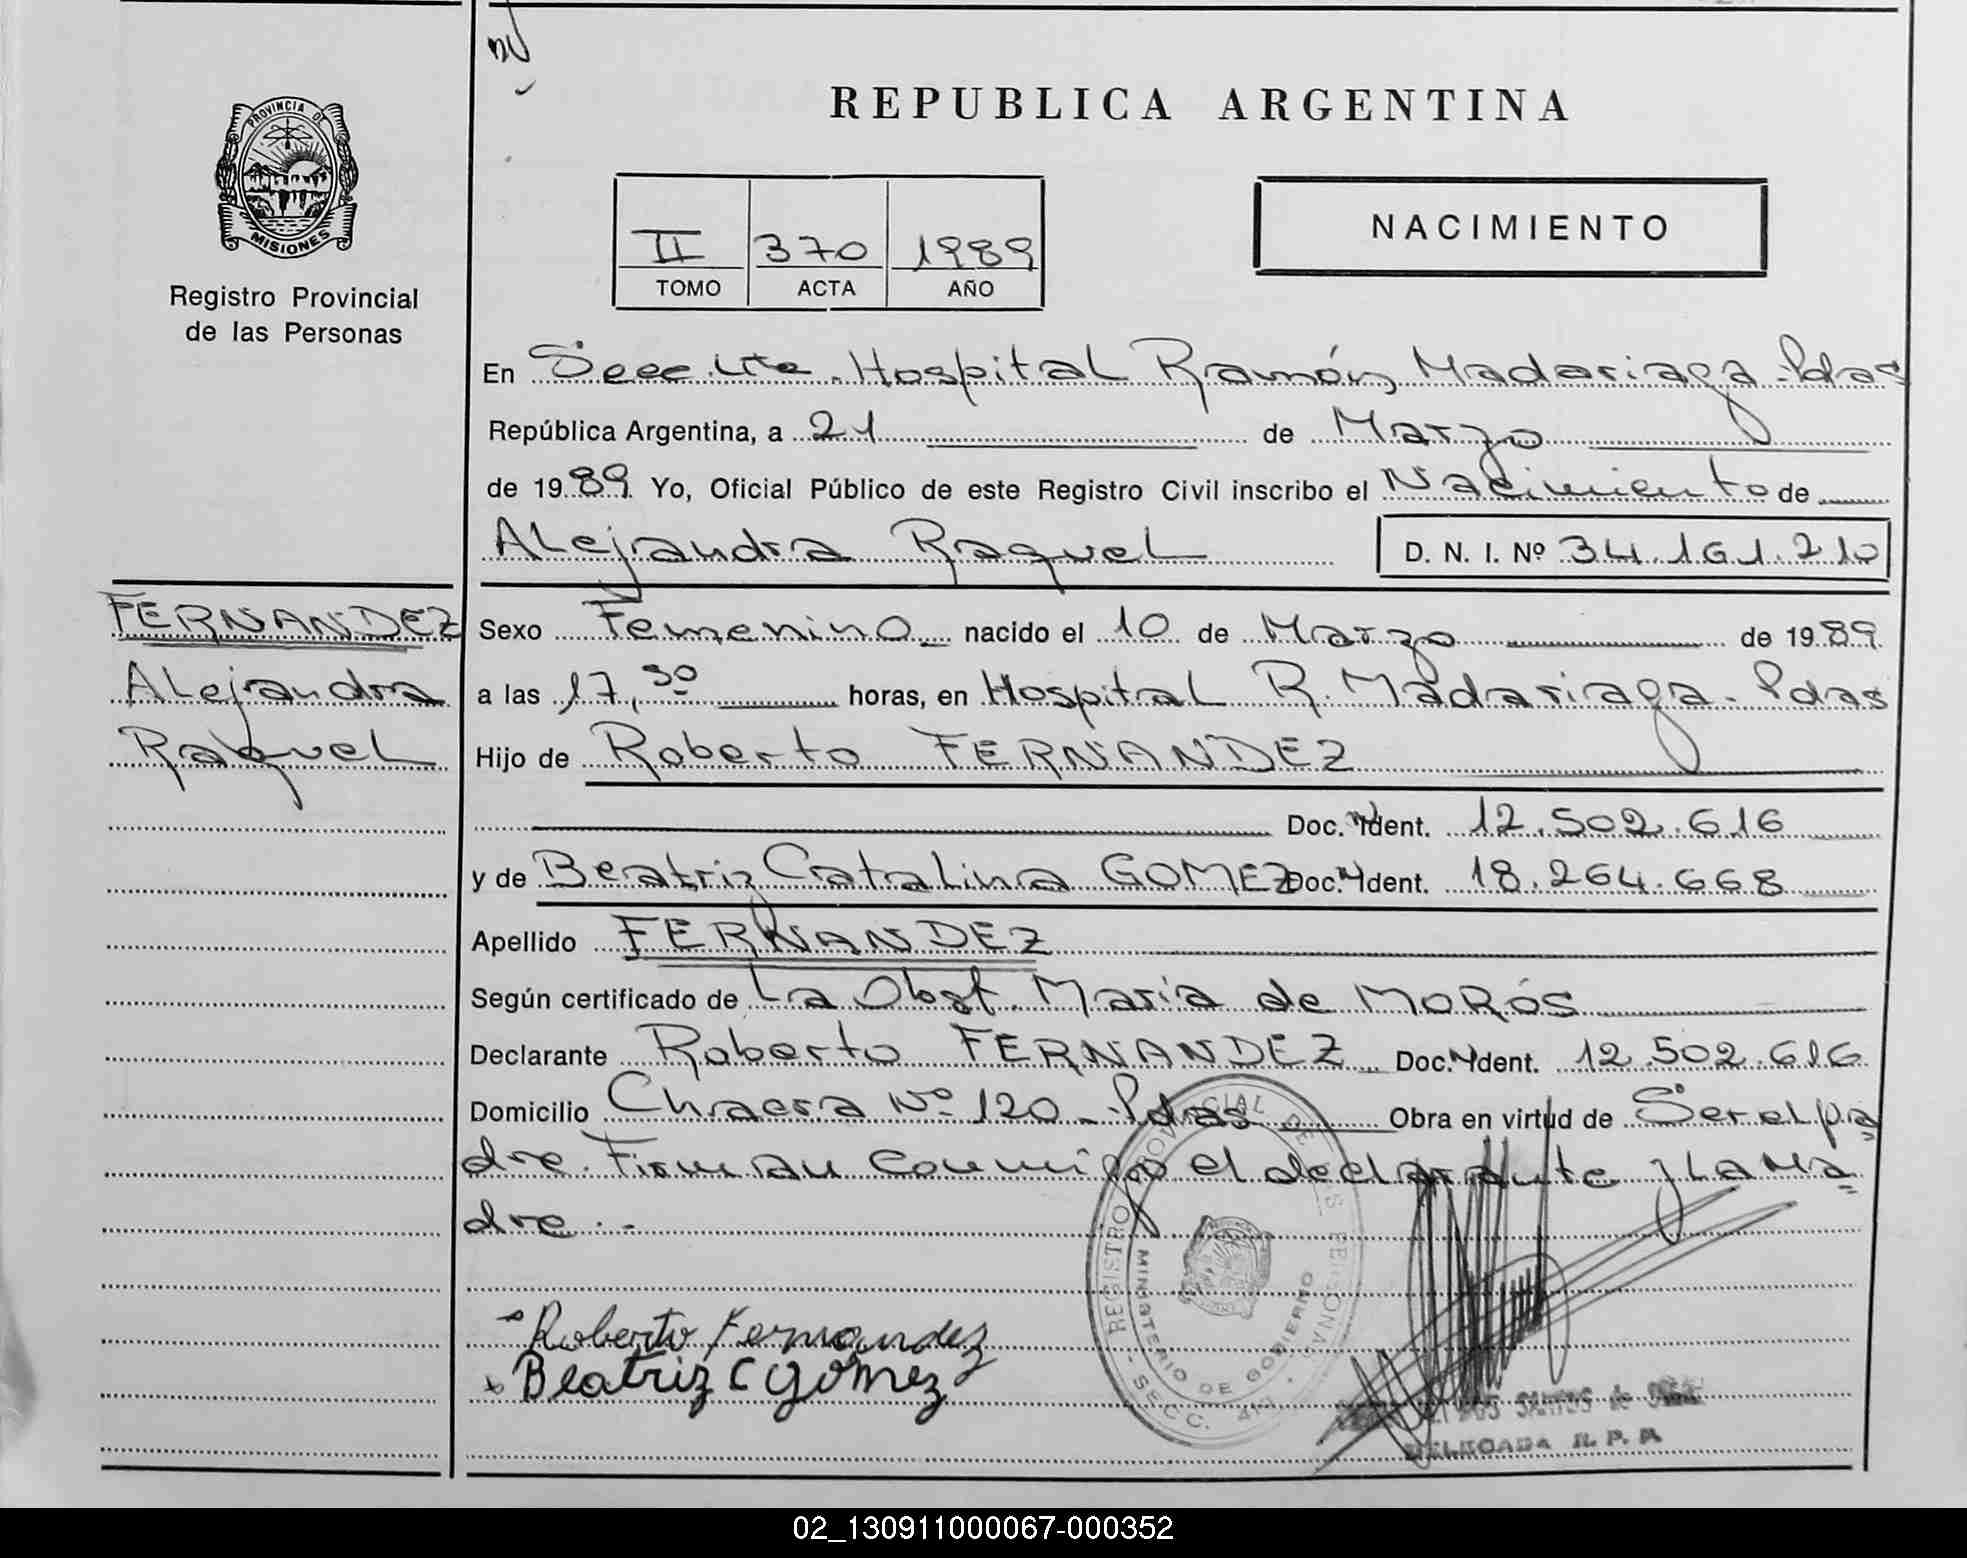 REPUBLICA ARGENTINA
PROVINCIA DE
MISIONES
Registro Provincial
de las Personas
II 370 1989
TOMO ACTA AÑO
NACIMIENTO
En Secc. Hospital Ramón Madariaga - Pdas
República Argentina, a 21 de Marzo
de 1989. Yo, Oficial Público de este Registro Civil inscribo el Nacimiento de
Alejandra Raquel D. N. I. Nº 34.161.210
FERNANDEZ
Alejandra
Raquel
Sexo Femenino nacido el 10 de Marzo de 1989.
a las 17,30 horas, en Hospital R. Madariaga - Pdas
Hijo de Roberto FERNANDEZ
Doc. Ident. 12.502.616
y de Beatriz Catalina GOMEZ Doc. Ident. 18.264.668
Apellido FERNANDEZ
Según certificado de La Obst. María de MORÓS
Declarante Roberto FERNANDEZ Doc. Ident. 12.502.616
Domicilio Chacra Nº 120 - Pdas Obra en virtud de Ser el pa
dre. Firman conmigo el declarante y la Ma
dre. -
Roberto Fernandez
Beatriz C Gómez
REGISTRO PROVINCIAL DE LAS PERSONAS
MINISTERIO DE GOBIERNO
SECC.
SANTOS de
DELEGADA R. P. P.
02_130911000067-000352